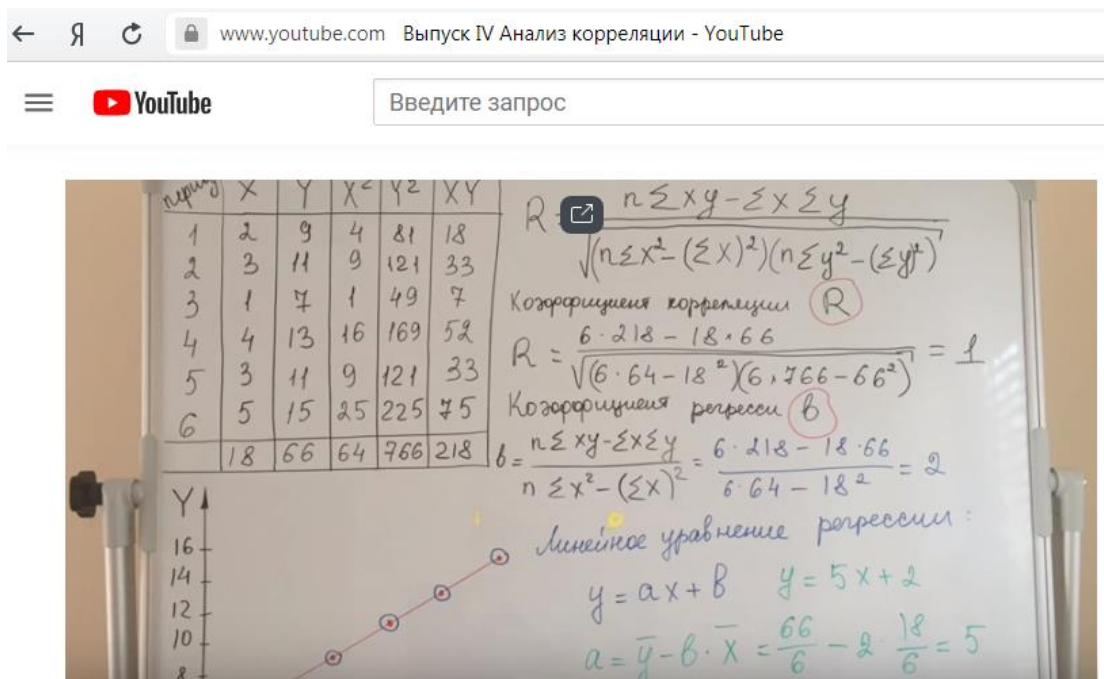 www.youtube.com Выпуск IV Анализ корреляции - YouTube
YouTube
Введите запрос
период X Y X² Y² XY
1 2 9 4 81 18
2 3 11 9 121 33
3 1 7 1 49 7
4 4 13 16 169 52
5 3 11 9 121 33
6 5 15 25 225 75
18 66 64 766 218
R = n Σ xy - Σ x Σ y / √(n Σ x² - (Σ x)²)(n Σ y² - (Σ y)²)
Коэффициент корреляции R
R = 6 · 218 - 18 · 66 / √(6 · 64 - 18²)(6 · 766 - 66²) = 1
Коэффициент регресси b
b = n Σ xy - Σx Σy / n Σ x² - (Σx)² = 6 · 218 - 18 · 66 / 6 · 64 - 18² = 2
Линейное уравнение регрессии :
y = ax + b y = 5x + 2
a = y̅ - b · x̅ = 66/6 - 2 · 18/6 = 5
Y
16
14
12
10
8